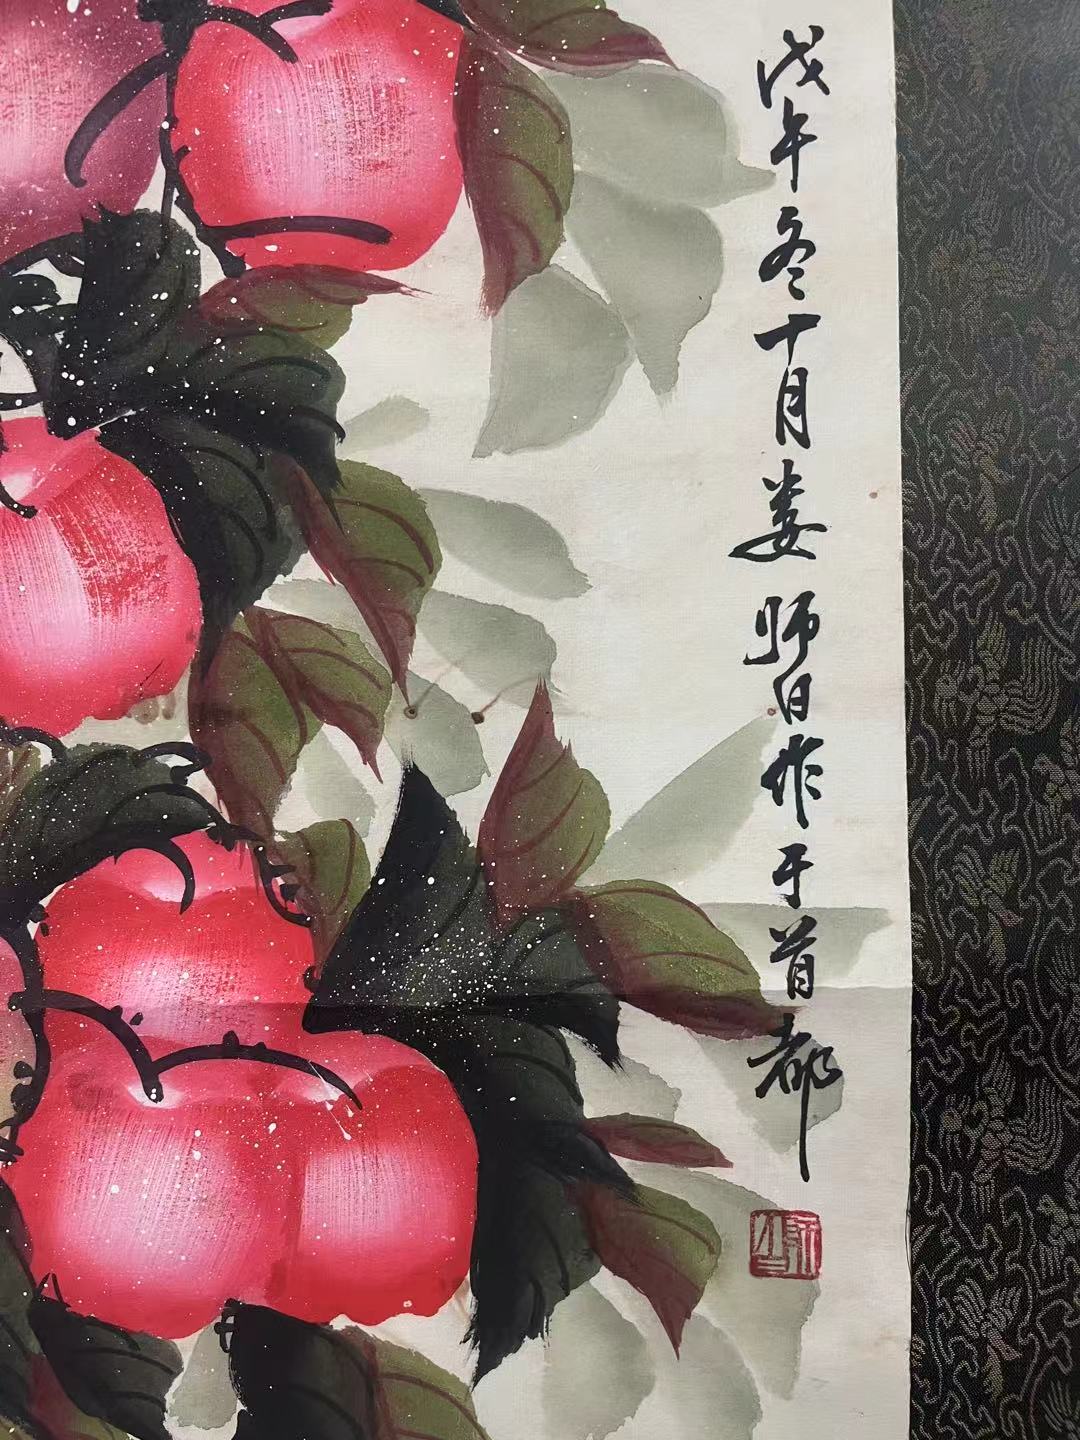 戊午冬十月娄师白作于首都